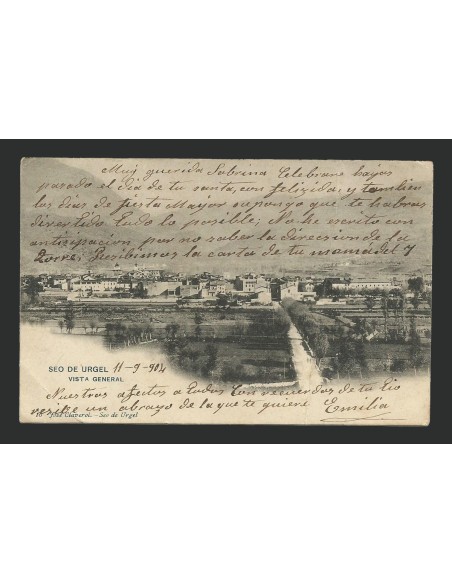 Muy querida Sobrina Celebrare hayas
pasado el dia de tu santa, con felizidad, y tambien
los dias de fiesta Mayor supongo que te habras
divertido todo lo posible; No he escrito con
anticipacion por no saber la direccion de la
Torre; Recibimos la carta de tu mamá del 7
SEO DE URGEL 11-9-904
VISTA GENERAL
Nuestros afectos a todos con recuerdos de tu tio
recibe un abrazo de la que te quiere Emilia
Claverol.—Seo de Urgel